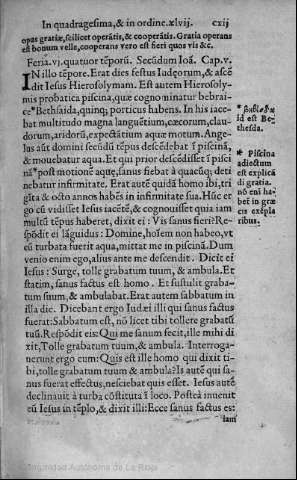 In quadragesima, & in ordine. xlvij. cxij
opus gratiæ, scilicet operātis, & cooperātis. Gratia operans
est bonum velle, cooperans vero est fieri quos vis &c.
Feria. vj. quatuor tēporū. Secūdum Ioā. Cap. v.
IN illo tēpore. Erat dies festus Iudęorum, & ascē
dit Iesus Hierosolymam. Est autem Hierosoly-
mis probatica piscina, quæ cognominatur hebrai-
ce *Bethsaida, quinq; porticus habens. In his iace-
bat multitudo magna languētium, cæcorum, clau-
dorum, aridorū, expectātium aquæ motum. Ange-
lus aūt domini secūdū tēpus descēdebat ī piscinā
, & mouebatur aqua. Et qui prior descēdisset ī pisci
nā *post motionē aquę, sanus fiebat à quacūq; deti
nebatur infirmitate. Erat autē quidā homo ibi, tri
gīta & octo annos habēs in infirmitate sua. Hūc er
go cū vidisset Iesus iacētē, & cognouisset quia iam
multū tēpus haberet, dixit ei: Vis sanus fieri? Re-
spōdit ei lāguidus: Domine, hoīem non habeo, vt
cū turbata fuerit aqua, mittat me in piscinā. Dum
venio enim ego, alius ante me descendit. Dicit ei
Iesus: Surge, tolle grabatum tuum, & ambula. Et
statim, sanus factus est homo. Et sustulit graba-
tum suum, & ambulabat. Erat autem sabbatum in
illa die. Dicebant ergo Iudæi illi qui sanus factus
fuerat: Sabbatum est, nō licet tibi tollere grabatū
tuū. Respōdit eis: Qui me sanum fecit, ille mihi di
xit, Tolle grabatum tuum, & ambula. Interroga-
uerunt ergo eum: Quis est ille homo qui dixit ti-
bi, tolle grabatum tuum & ambula? Is autē qui sa-
nus fuerat effectus, nesciebat quis esset. Iesus autē
declinauit à turba cōstituta ī loco. Posteà inuenit
eū Iesus in tēplo, & dixit illi: Ecce sanus factus es:
iam
id est Be-
thesda.
* Piscina
adiectum
est explicā
di gratia.
nō enī ha-
bet in græ
cis exēpla
ribus.
Universidad Autónoma de La Rioja